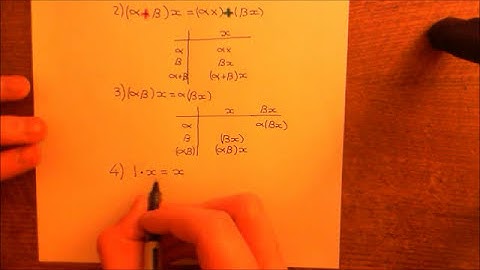 2) (α+β)x = (αx)+(βx)
x
α αx
β βx
α+β (α+β)x
3) (αβ)x = α(βx)
x βx
α α(βx)
β (βx)
(αβ) (αβ)x
4) 1·x = x